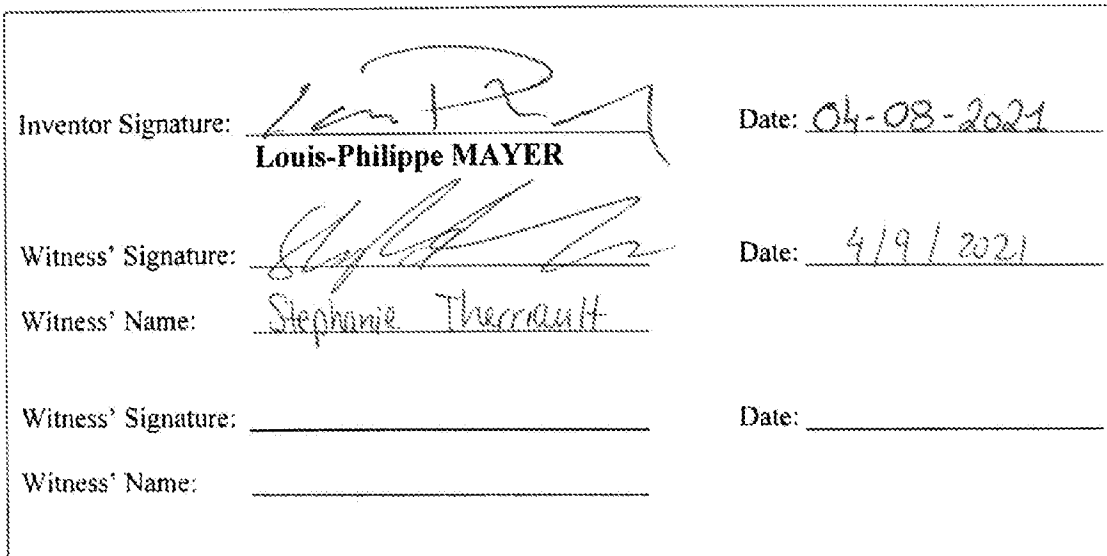 Inventor Signature: Date: 04-08-2021
Louis-Philippe MAYER
Witness' Signature: Date: 4/9/2021
Witness' Name: Stephanie Therriault
Witness' Signature: Date:
Witness' Name: